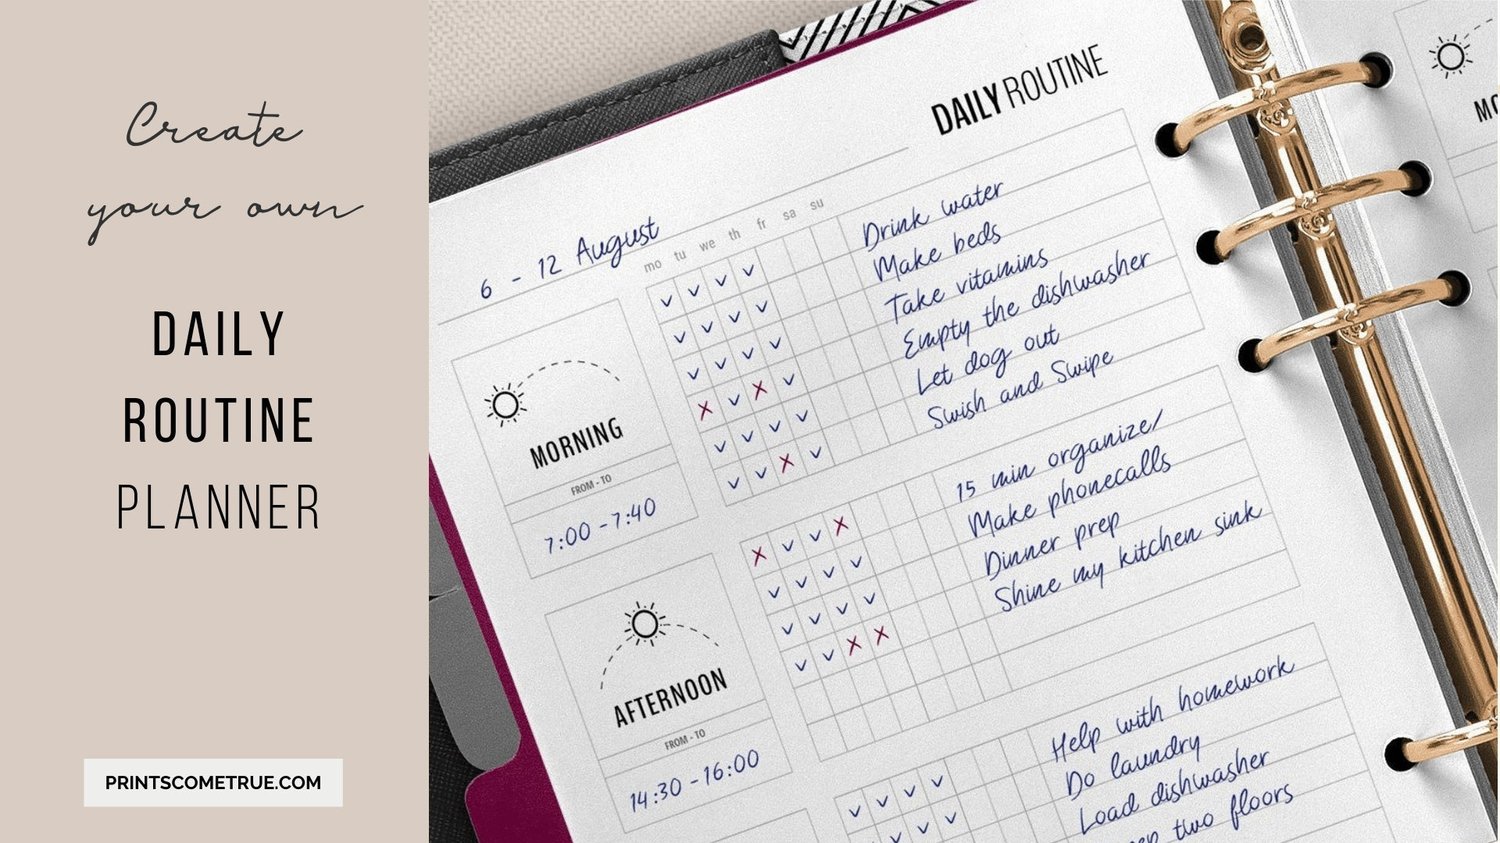 Create
your own
DAILY
ROUTINE
PLANNER
PRINTSCOMETRUE.COM
DAILY ROUTINE
6 - 12 August
mo tu we th fr sa su
MORNING
FROM - TO
7:00 - 7:40
Drink water
Make beds
Take vitamins
Empty the dishwasher
Let dog out
Swish and Swipe
AFTERNOON
FROM - TO
14:30 - 16:00
15 min organize/
Make phonecalls
Dinner prep
Shine my kitchen sink
Help with homework
Do laundry
Load dishwasher
two floors